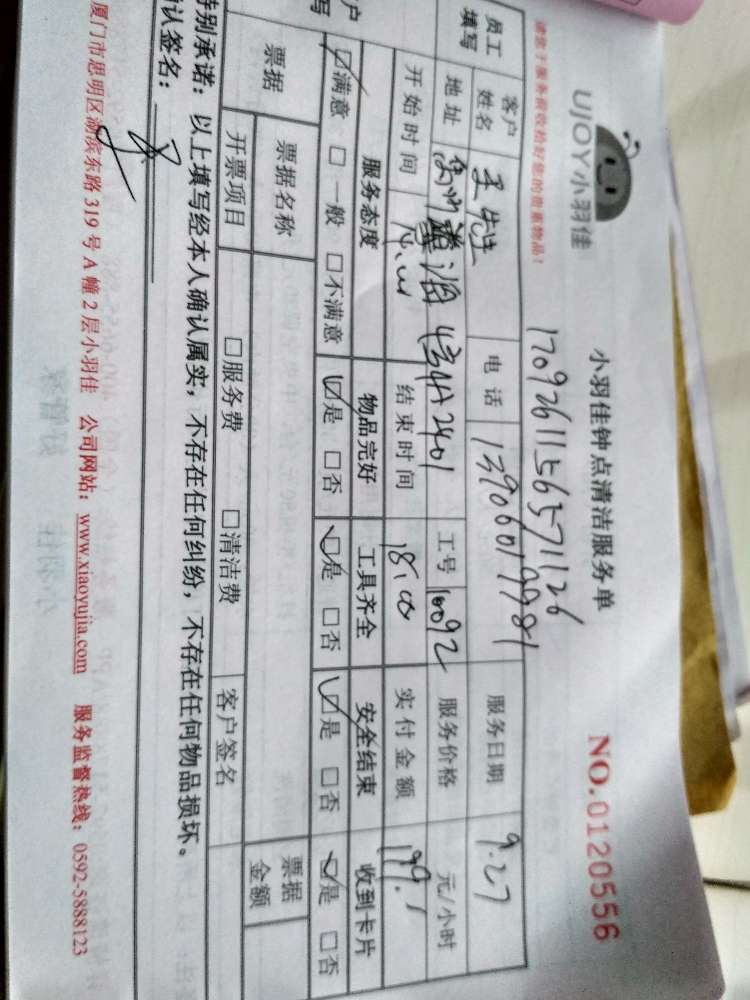 UJOY小羽佳
小羽佳钟点清洁服务单
NO.0120556
请您于服务前收拾好您的贵重物品！
17092611565371126
员工填写
客户姓名 王先生 电话 13906019981 服务日期 9.27
地址 4号A2401 工号 10092 服务价格 元/小时
开始时间 结束时间 18:00 实付金额 199.1
服务态度 物品完好 工具齐全 安全结束 收到卡片
☑满意 □一般 □不满意 ☑是 □否 ☑是 □否 ☑是 □否 ☑是 □否
票据 票据名称 票据金额
开票项目 □服务费 □清洁费 客户签名
特别承诺：以上填写经本人确认属实，不存在任何纠纷，不存在任何物品损坏。
认签名：
厦门市思明区湖滨东路 319 号 A 幢 2 层小羽佳 公司网站：www.xiaoyujia.com 服务监督热线：0592-5888123